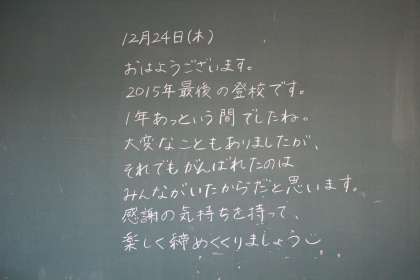 12月24日(木)
おはようございます。
2015年最後の登校です。
1年あっという間でしたね。
大変なこともありましたが、
それでもがんばれたのは
みんながいたからだと思います。
感謝の気持ちを持って、
楽しく締めくくりましょう